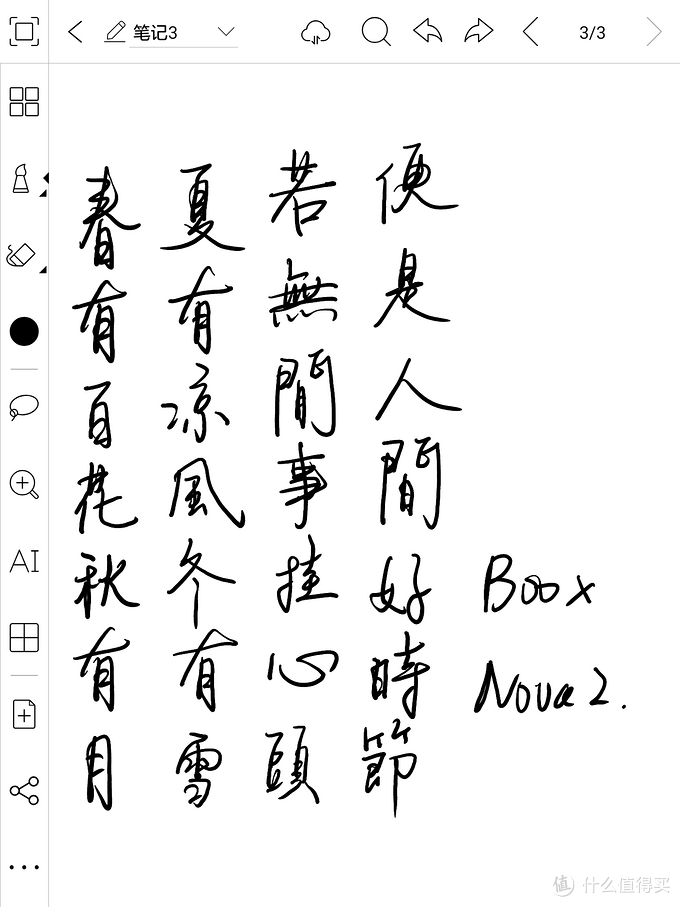 笔记3
3/3
AI
春有百花秋有月
夏有凉風冬有雪
若無閒事挂心頭
便是人間好時節
Boox
Nova 2.
值 什么值得买